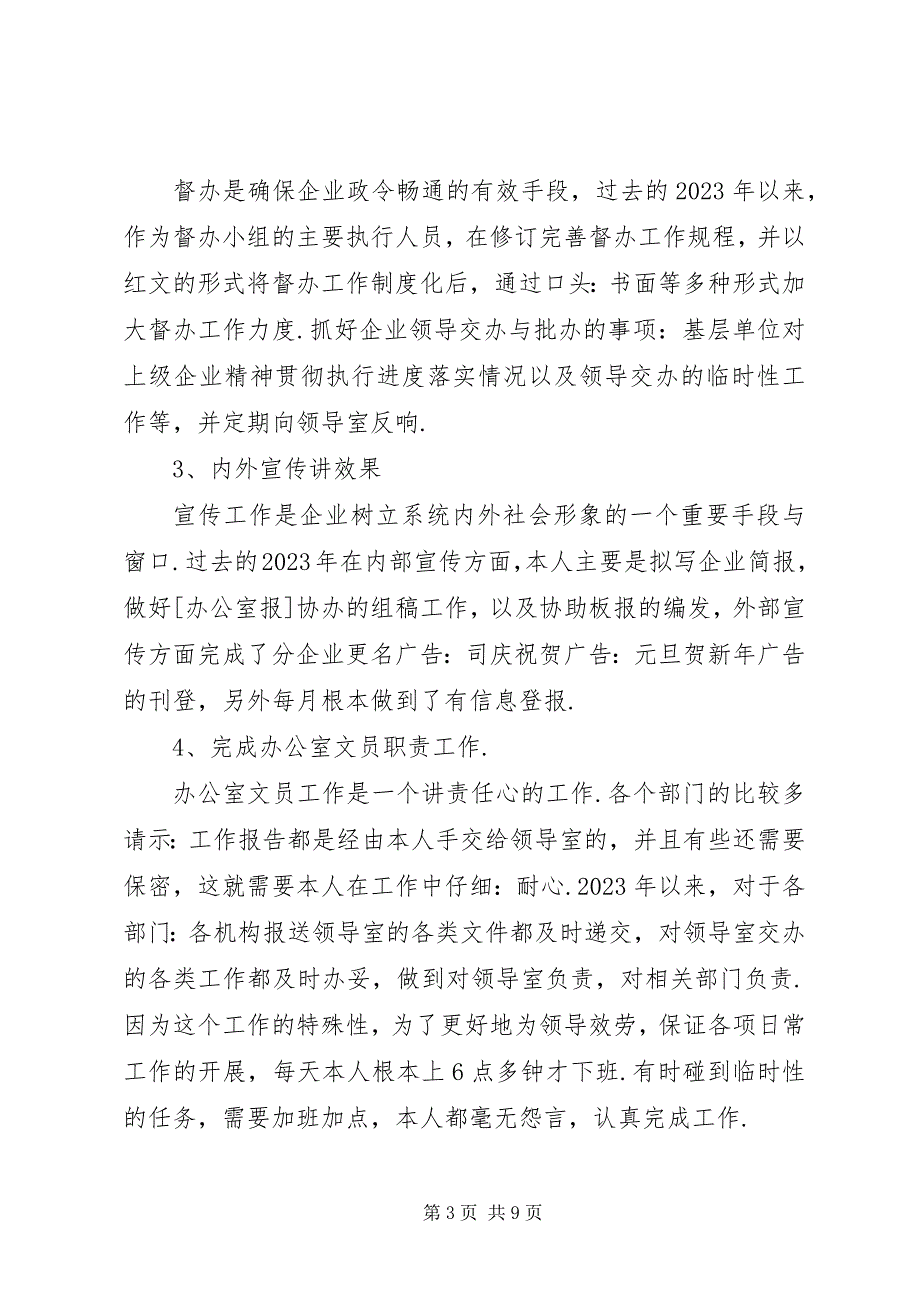 督办是确保企业政令畅通的有效手段，过去的 2023 年以来，
作为督办小组的主要执行人员，在修订完善督办工作规程，并以
红文的形式将督办工作制度化后，通过口头：书面等多种形式加
大督办工作力度.抓好企业领导交办与批办的事项：基层单位对
上级企业精神贯彻执行进度落实情况以及领导交办的临时性工
作等，并定期向领导室反响.
3、内外宣传讲效果
宣传工作是企业树立系统内外社会形象的一个重要手段与
窗口.过去的 2023 年在内部宣传方面，本人主要是拟写企业简报，
做好[办公室报]协办的组稿工作，以及协助板报的编发，外部宣
传方面完成了分企业更名广告：司庆祝贺广告：元旦贺新年广告
的刊登，另外每月根本做到了有信息登报.
4、完成办公室文员职责工作.
办公室文员工作是一个讲责任心的工作.各个部门的比较多
请示：工作报告都是经由本人手交给领导室的，并且有些还需要
保密，这就需要本人在工作中仔细：耐心.2023 年以来，对于各
部门：各机构报送领导室的各类文件都及时递交，对领导室交办
的各类工作都及时办妥，做到对领导室负责，对相关部门负责.
因为这个工作的特殊性，为了更好地为领导效劳，保证各项日常
工作的开展，每天本人根本上 6 点多钟才下班.有时碰到临时性
的任务，需要加班加点，本人都毫无怨言，认真完成工作.
第 3 页 共 9 页